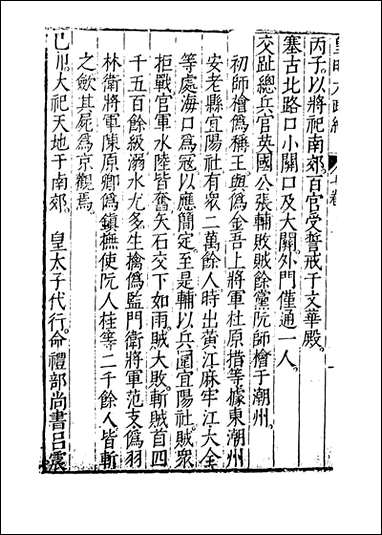 丙子以將祀南郊百官受誓戒于文華殿
塞古北路口小關口及大關外門僅通一人
交趾總兵官英國公張輔敗賊餘黨阮師檜于潮州
初師檜僞稱王與僞金吾上將軍杜原措等據東潮州
安老縣宜陽社有衆二萬餘人時出黃江麻牢江大全
等處海口爲寇以應簡定至是輔以兵圍宜陽社賊衆
拒戰官軍水陸皆奮矢石交下如雨賊大敗斬賊首四
千五百餘級溺水尤多生擒僞監門衛將軍范支僞羽
林衛將軍陳原卿僞鎮撫使阮人柱等二千餘人皆斬
之斂其屍爲京觀焉
己卯大祀天地于南郊 皇太子代行命禮部尚書呂震